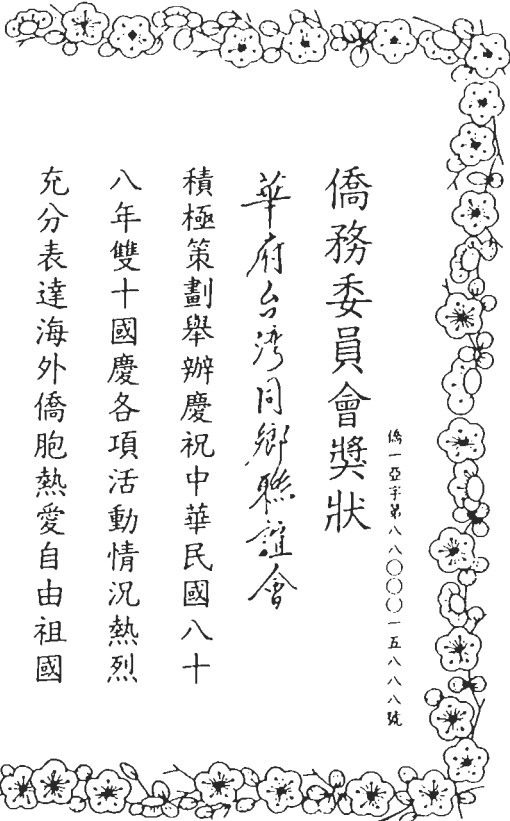 僑一亞字第八八〇〇〇一五八八八號
僑務委員會獎狀
華府台湾同鄉聯誼會
積極策劃舉辦慶祝中華民國八十
八年雙十國慶各項活動情況熱烈
充分表達海外僑胞熱愛自由祖國